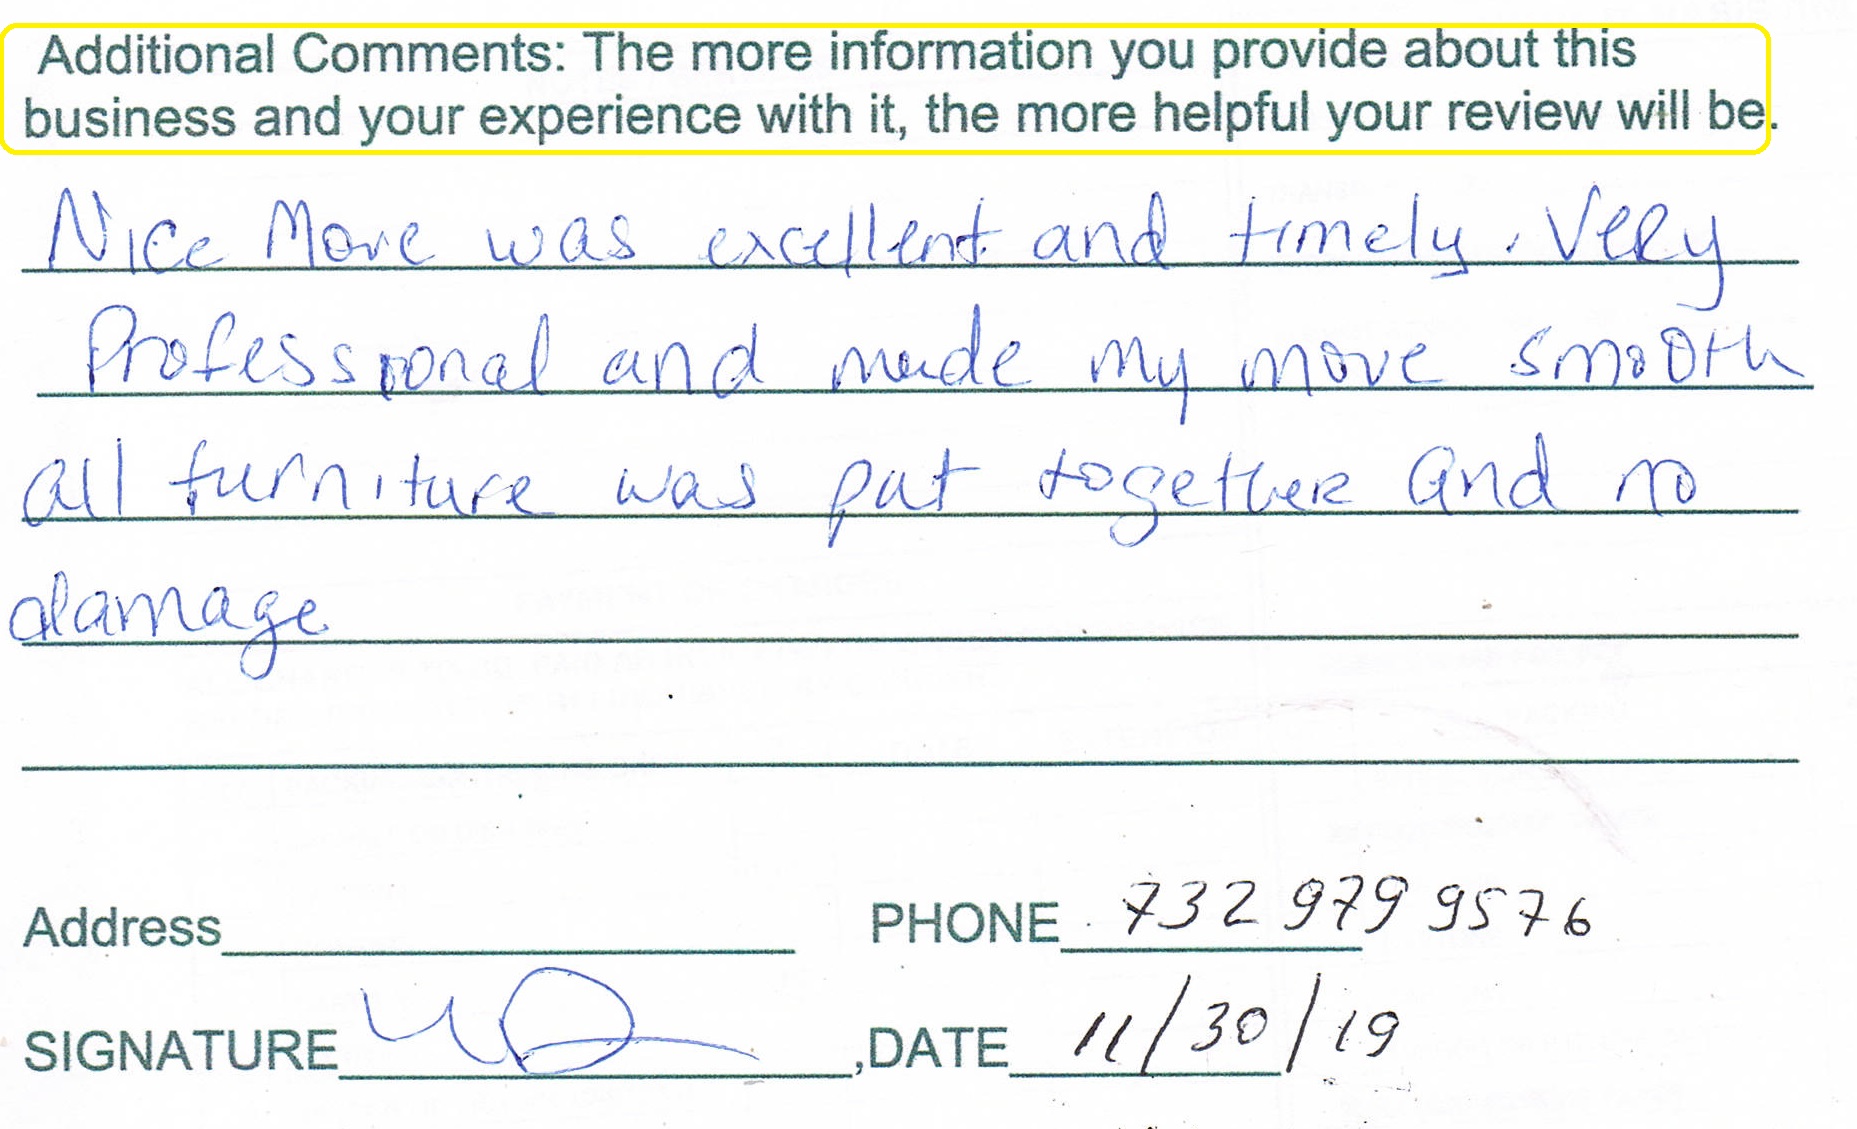 Additional Comments: The more information you provide about this
business and your experience with it, the more helpful your review will be.
Nice Move was excellent and timely. Very
Professional and made my move smooth
all furniture was put together and no
damage
Address PHONE 732 979 9576
SIGNATURE ,DATE 11/30/19